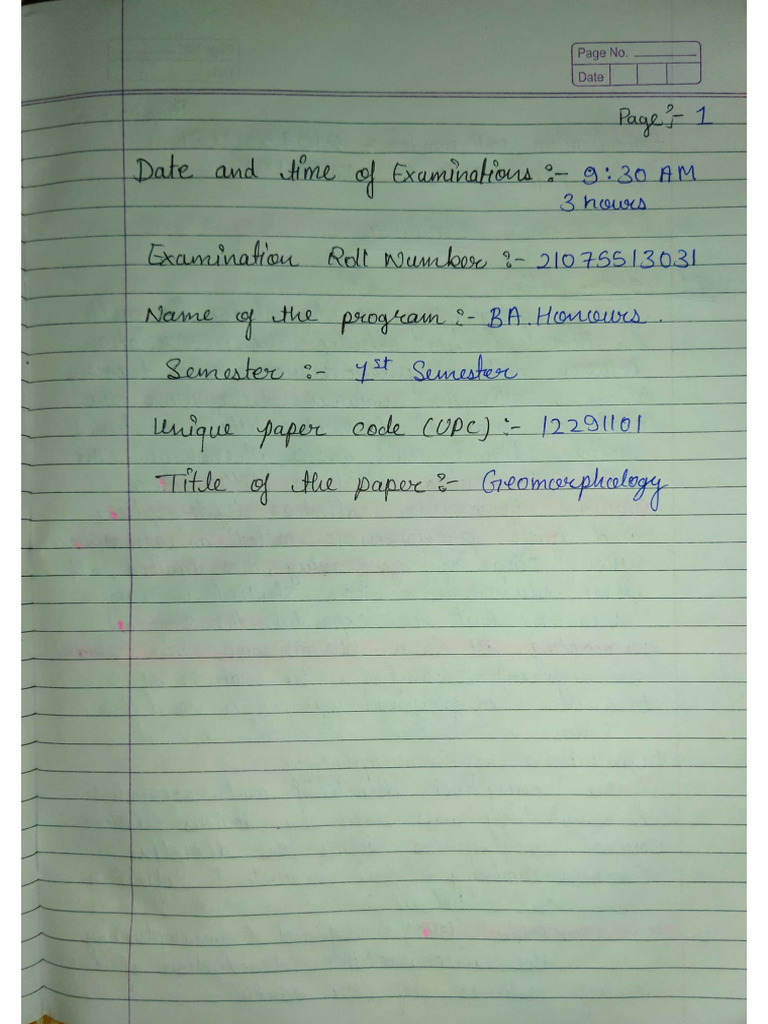 Page No.
Date
Page:- 1
Date and time of Examinations :- 9:30 AM
3 hours
Examination Roll Number :- 21075513031
Name of the program :- BA. Honours.
Semester :- 1st Semester
Unique paper code (UPC) :- 12291101
Title of the paper :- Geomorphology